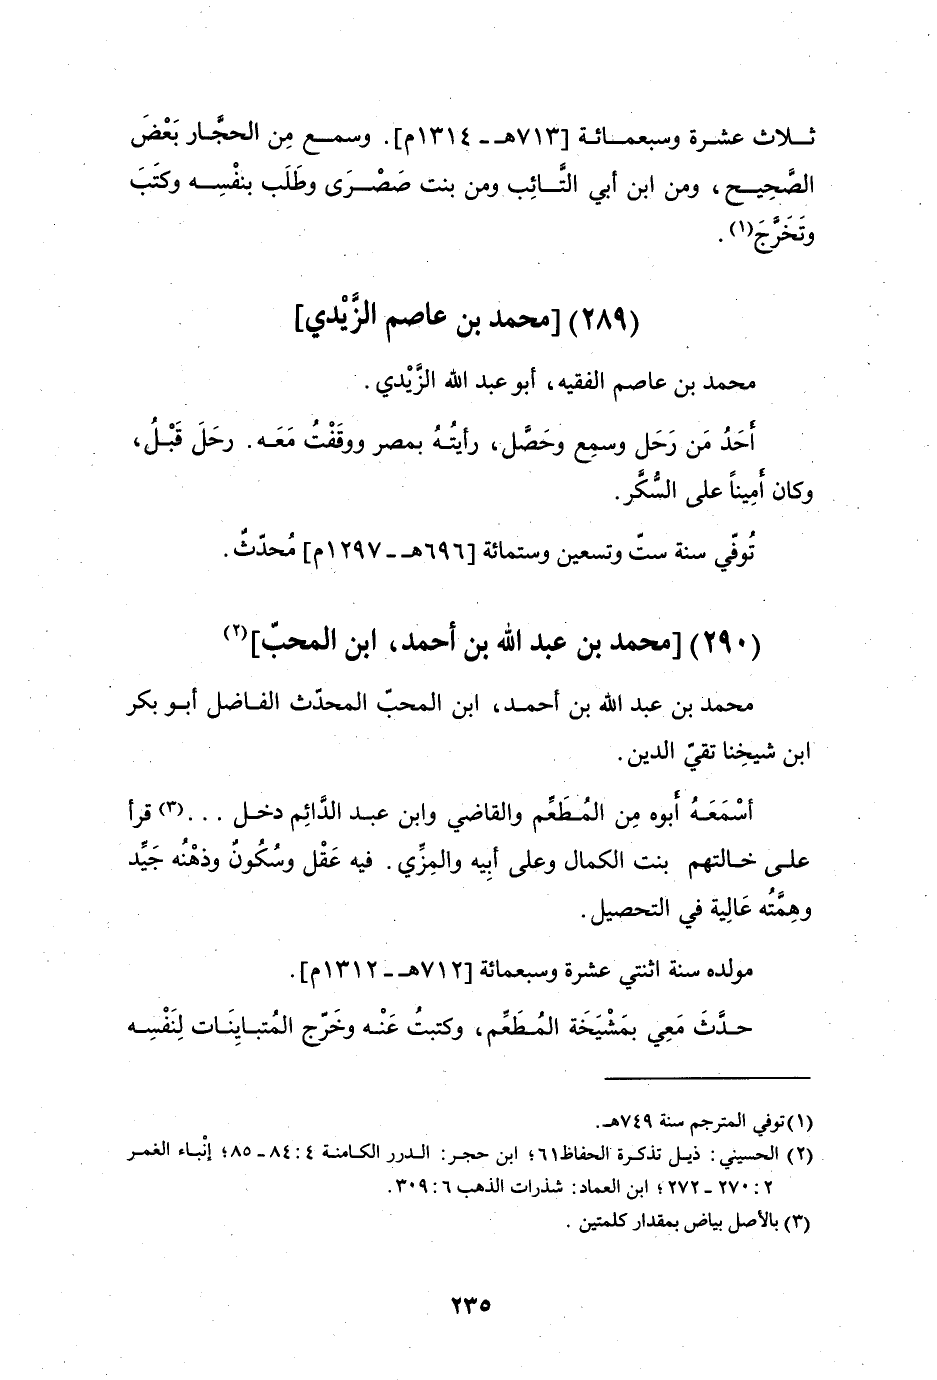 ثـلاث عشـرة وسبعمـائـة [٧١٣هـ - ١٣١٤م]. وسمـع مِن الحجَّـار بَعْضَ
الصَّحِيـح، ومن ابن أبي التَّـائِب ومن بنت صَصْـرَى وطَلَب بنفْسِـه وكتَبَ
وتَخَرَّجَ(١).
(٢٨٩) [محمد بن عاصم الزَّيْدي]
محمد بن عاصم الفقيه، أبو عبد الله الزَّيْدي.
أَحَدُ مَن رَحَل وسمِع وحَصَّل، رأيتُـهُ بمصر ووقَفْتُ مَعَـه. رحَلَ قَبْـلُ،
وكان أَمِيناً على السُّكَّر.
تُوفّي سنة ستّ وتسعين وستمائة [٦٩٦هـ - ١٢٩٧م] مُحدّثٌ.
(٢٩٠) [محمد بن عبد الله بن أحمد، ابن المحبّ](٢)
محمد بن عبد الله بن أحمـد، ابن المحبّ المحدّث الفـاضل أبـو بكر
ابن شيخِنا تقيّ الدين.
أسْمَعَـهُ أَبوه مِن المُـطَعِّم والقاضي وابن عبـد الدَّائِم دخـل ...(٣) قرأ
علـى خـالتهم بنت الكمال وعلى أبِيه والمِزِّي. فيه عَقْل وسُكُونٌ وذهْنُه جَيِّد
وهِمَّتُه عَالِية في التحصيل.
مولده سنة اثنتي عشرة وسبعمائة [٧١٢هـ - ١٣١٢م].
حـدَّثَ مَعِي بمَشْيَخَة المُـطَعِّم، وكتبتُ عَنْـه وخَرّج المُتبـايِنَـات لِنَفْسِـه
(١) توفي المترجم سنة ٧٤٩هـ.
(٢) الحسيني: ذيـل تذكـرة الحفاظ ٦١؛ ابن حجـر: الـدرر الكـامنـة ٤: ٨٤ - ٨٥؛ إنْبـاء الغمـر
٢: ٢٧٠ - ٢٧٢؛ ابن العماد: شذرات الذهب ٦: ٣٠٩.
(٣) بالأصل بياض بمقدار كلمتين.
٢٣٥